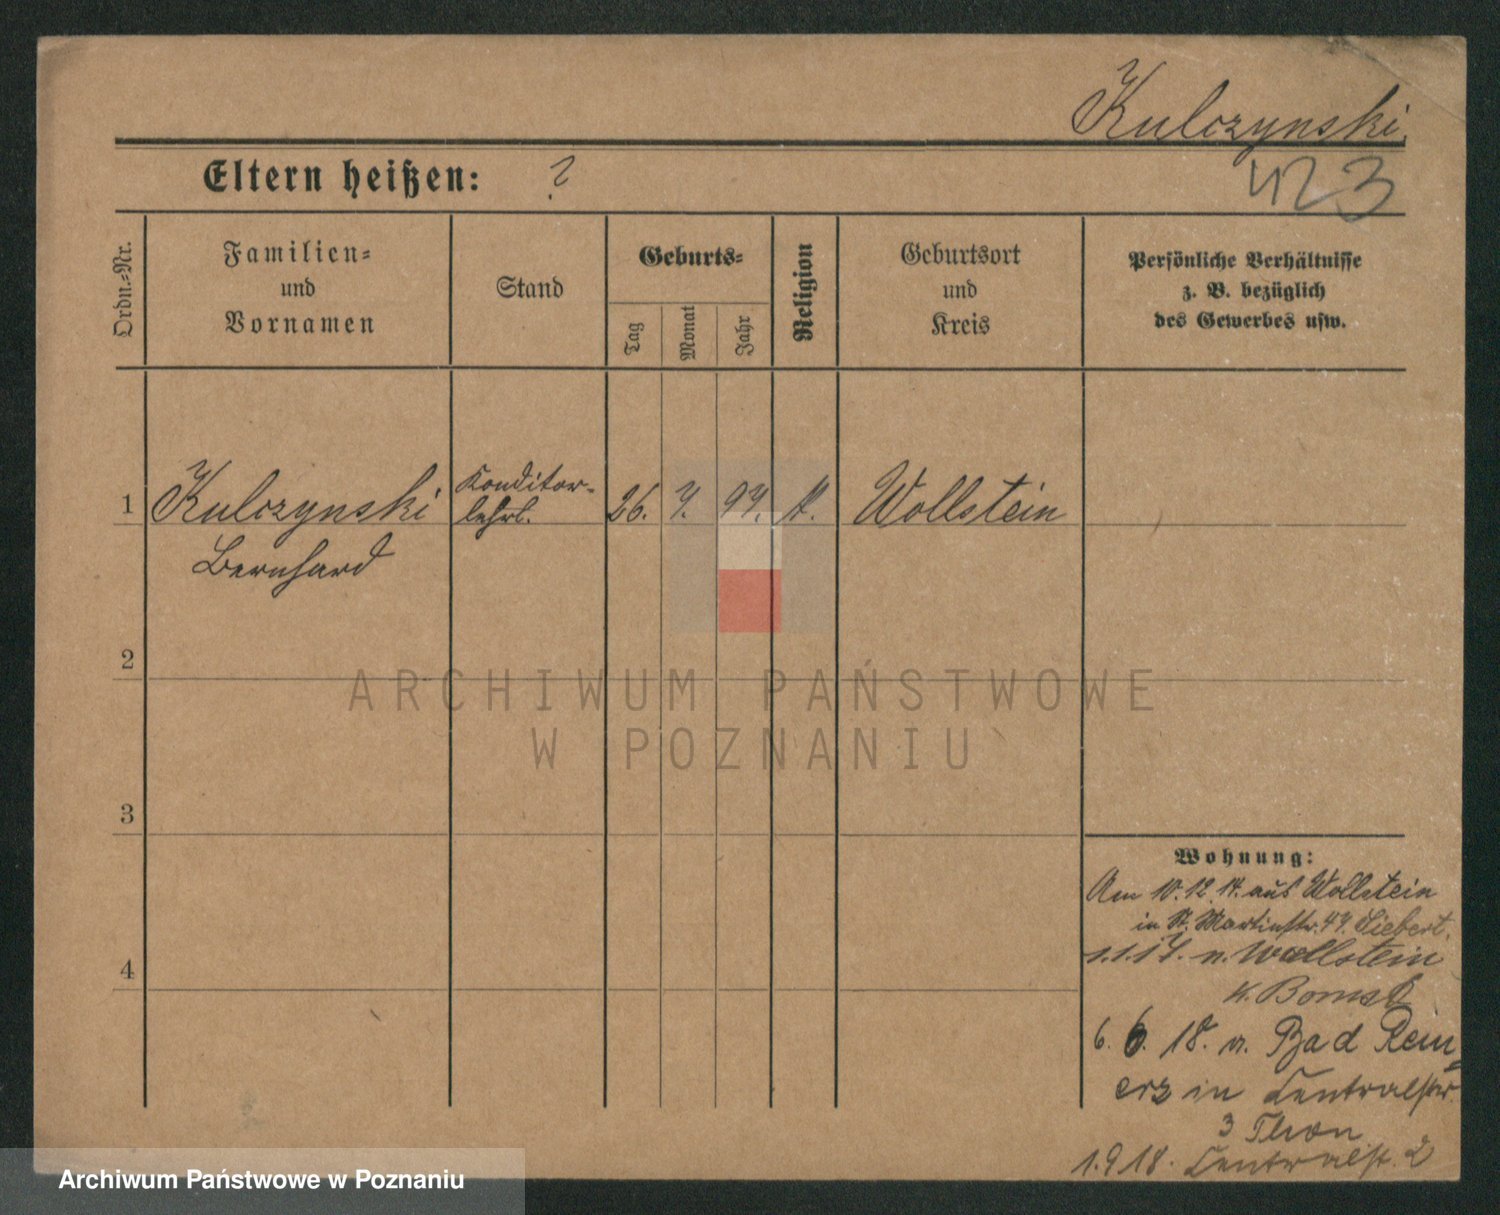 Kulczynski.
Eltern heißen: ?
423
Ordn.-Nr.
Familien-
und
Vornamen
Stand
Geburts-
Tag
Monat
Jahr
Religion
Geburtsort
und
Kreis
Persönliche Verhältnisse
z. B. bezüglich
des Gewerbes usw.
1 Kulczynski Konditor- 26. 7. 97. K. Wollstein
lehrl.
Bernhard
2
3
4
Wohnung:
Am 10.12.14. aus Wollstein
in St. Martinstr. 47. Siebert.
1.1.17. n. Wollstein
K. Bomst
6. 6. 18. a. Bad Rein-
erz in Centralstr.
3 Thon
1.9.18. Centralstr. 2
ARCHIWUM PAŃSTWOWE
W POZNANIU
Archiwum Państwowe w Poznaniu